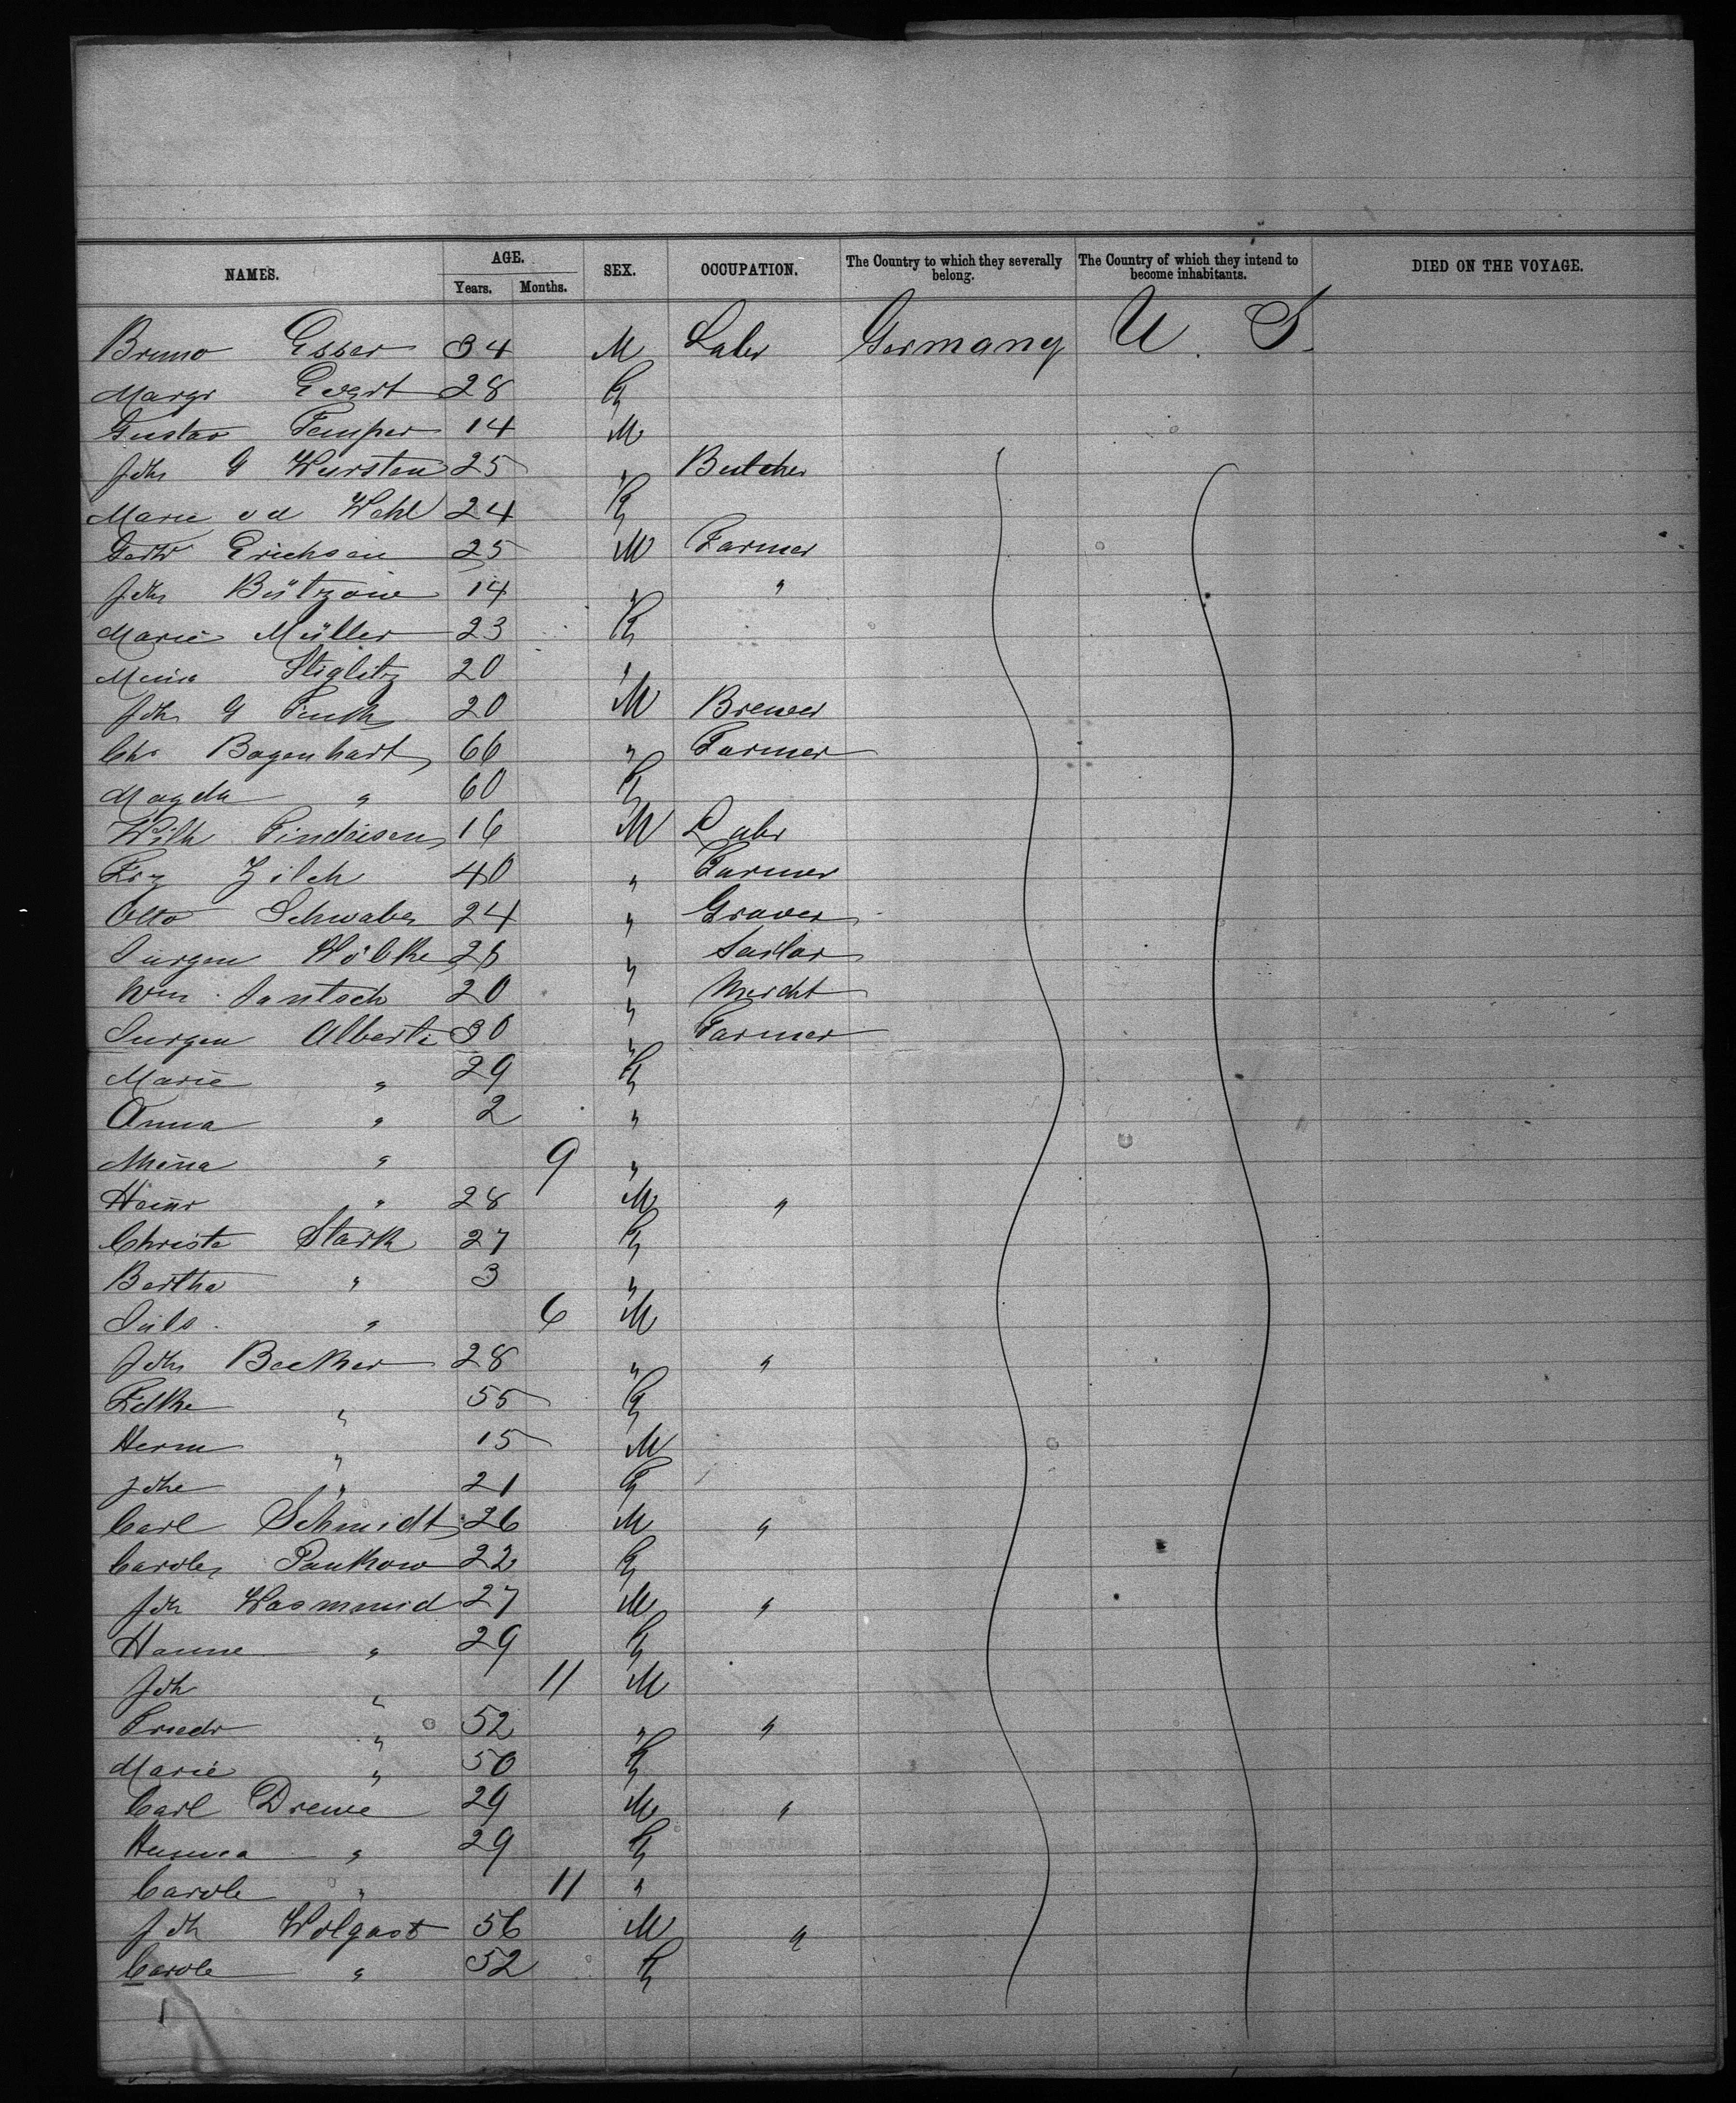 NAMES. AGE. SEX. OCCUPATION. The Country to which they severally belong. The Country of which they intend to become inhabitants. DIED ON THE VOYAGE.
Years. Months.
Bruno Esser 34 M Labr Germany U. S.
Margr Evert 28 F
Gustav Temper 14 M
Joh G Wursten 25 " Butcher
Marie v d Wehl 24 F
Erichsen 25 M Farmer
Joh Bützow 14 " "
Marie Müller 23 F
Stiglitz 20 "
Joh G 20 M Brewer
Chr Bagenhart 66 " Farmer
Magda " 60 F
Wilh Findeisen 16 M Labr
Frz Zilch 40 " Farmer
Otto Schwabe 24 " Graver
Jurgen Wöbke 25 " Sailor
Wm Jantsch 20 " Mercht
Jurgen Alberti 30 " Farmer
Marie " 29 F
Anna " 2 "
Mina " 9 "
Heinr " 28 M "
Christe Stark 27 F
Bertha " 3 "
Juls " 6 M
Joh Becker 28 " "
" 55 F
Herm " 15 M
Johe " 21 F
Carl Schmidt 26 M "
Carole Pankow 22 F
Joh Wasmund 27 M "
Hanne " 29 F
Joh " 11 M
Friedr " 52 " "
Marie " 50 F
Carl Drewe 29 M "
" 29 F
Carole " 11 "
Joh Wolgast 56 M "
Carole " 52 F